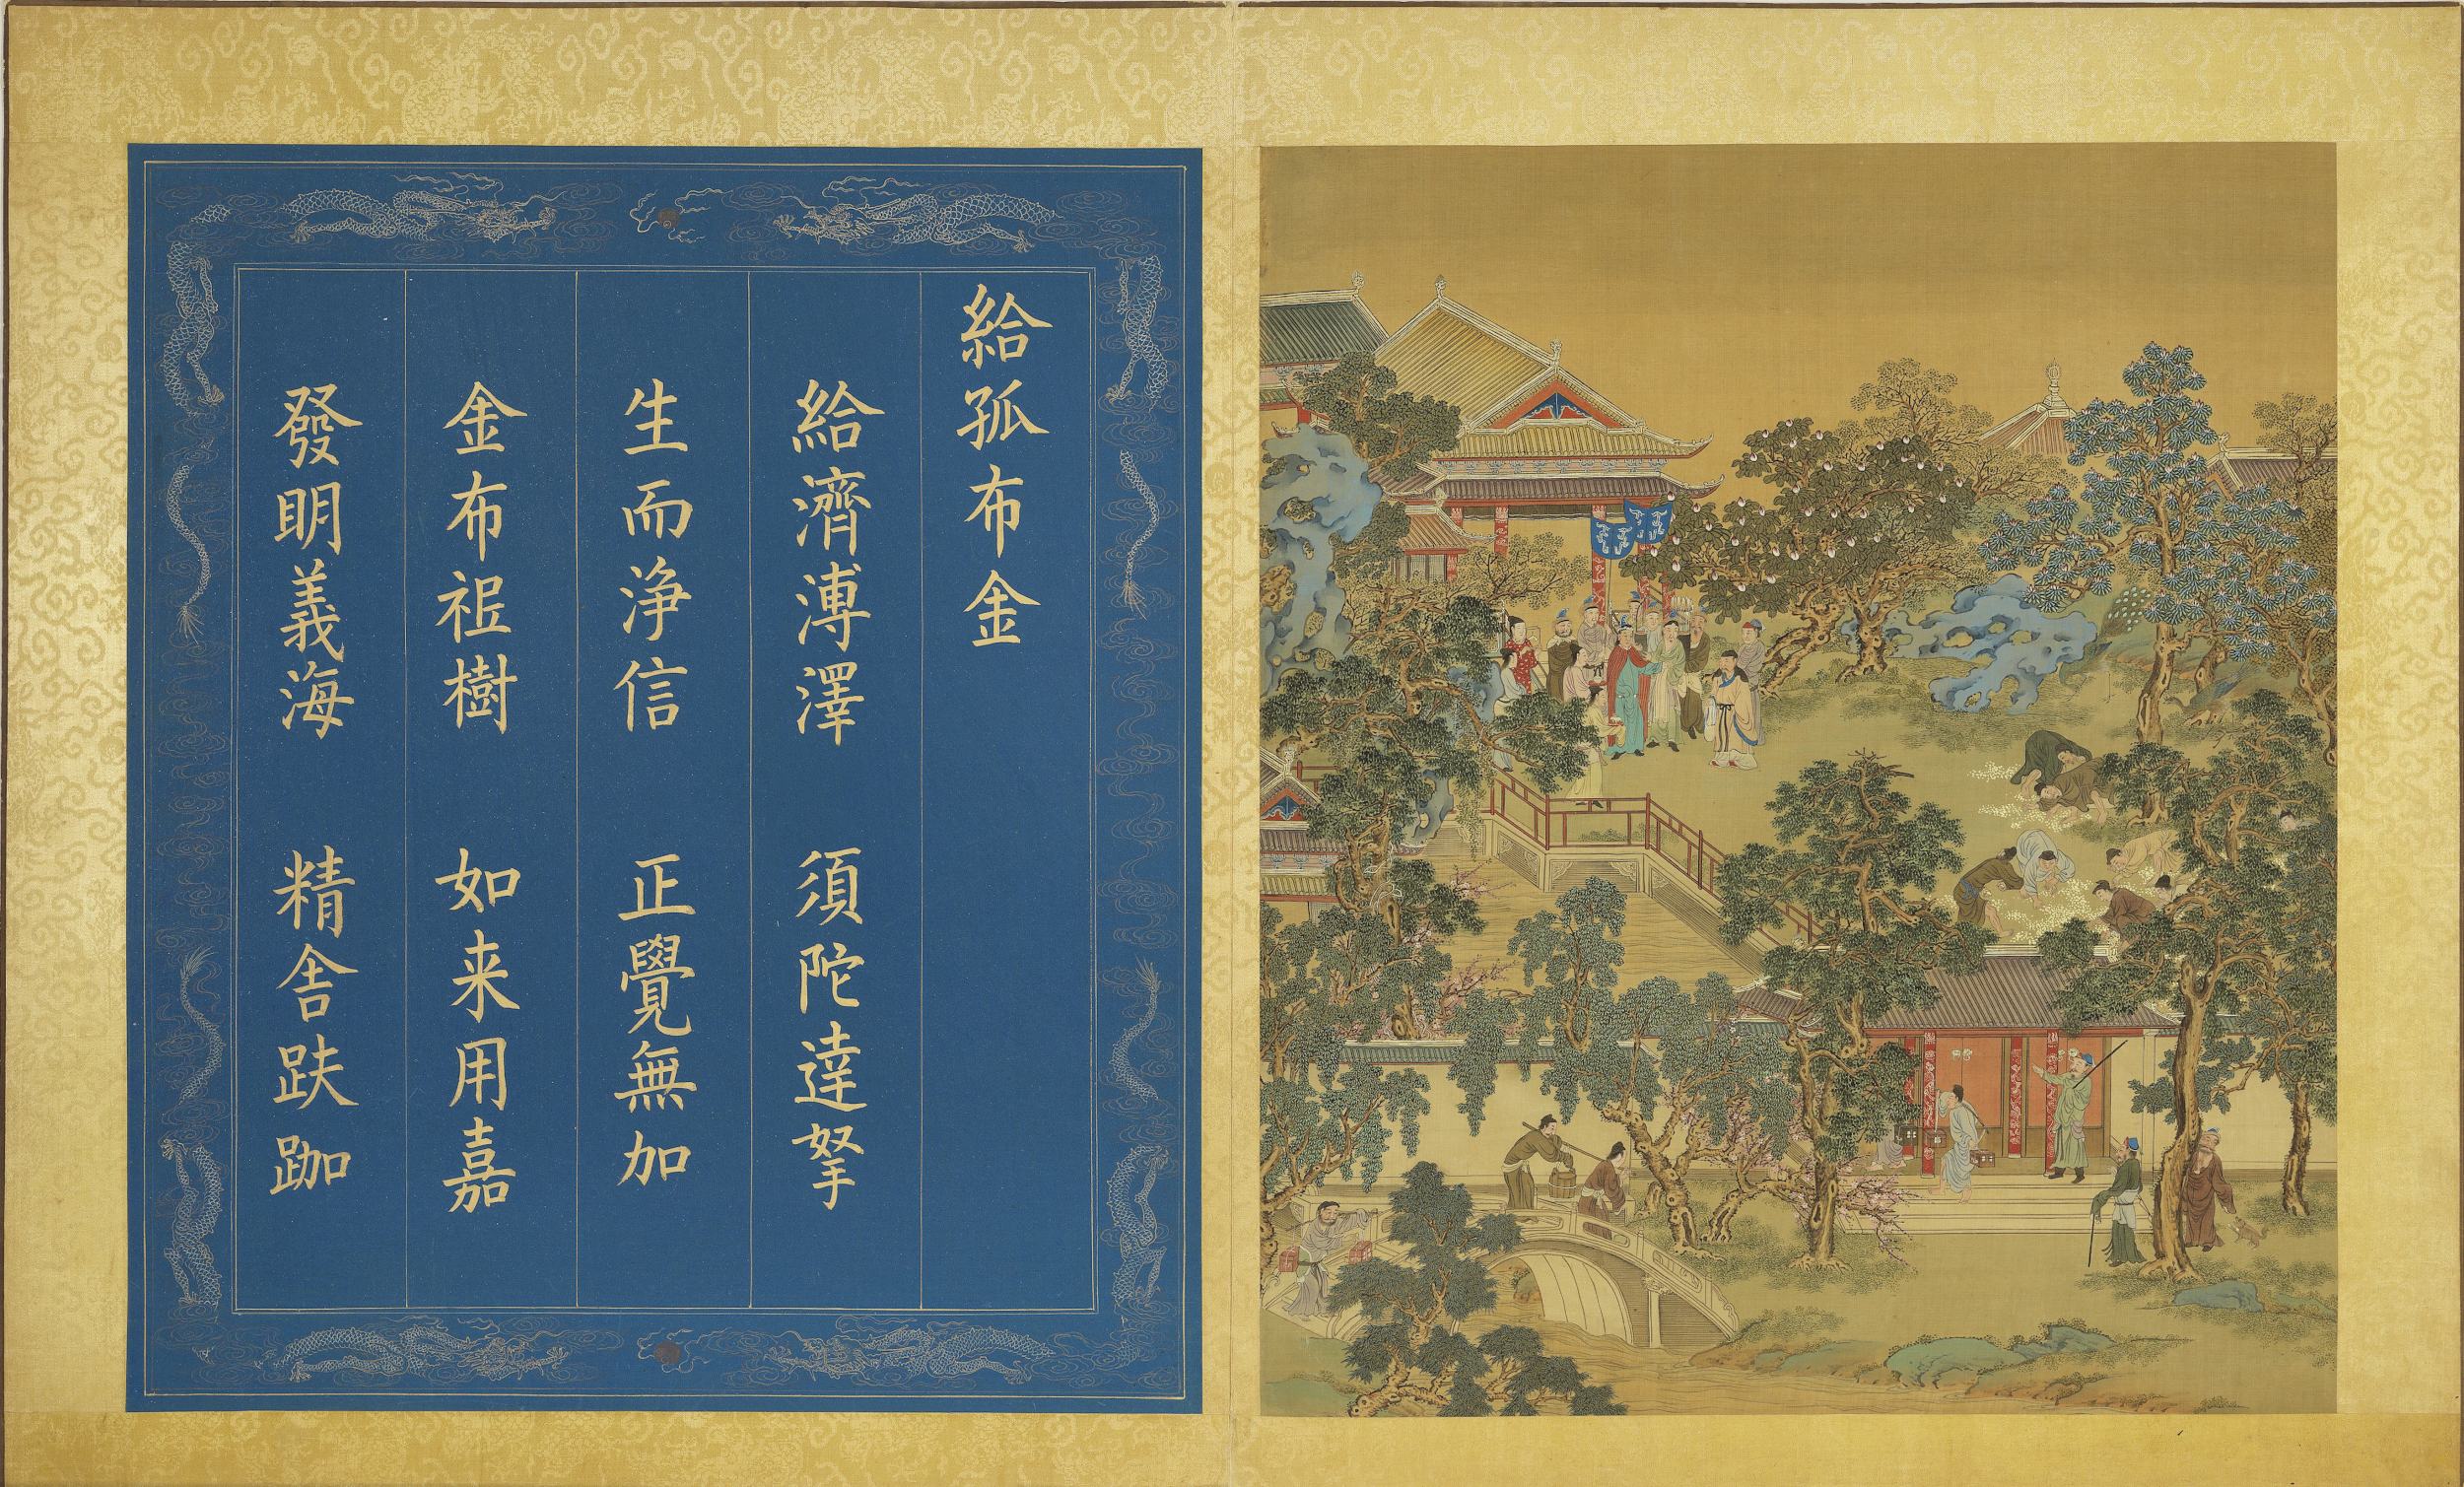 給孤布金
給濟溥澤　須陀達拏
生而浄信　正覺無加
金布祇樹　如来用嘉
發明義海　精舍趺跏